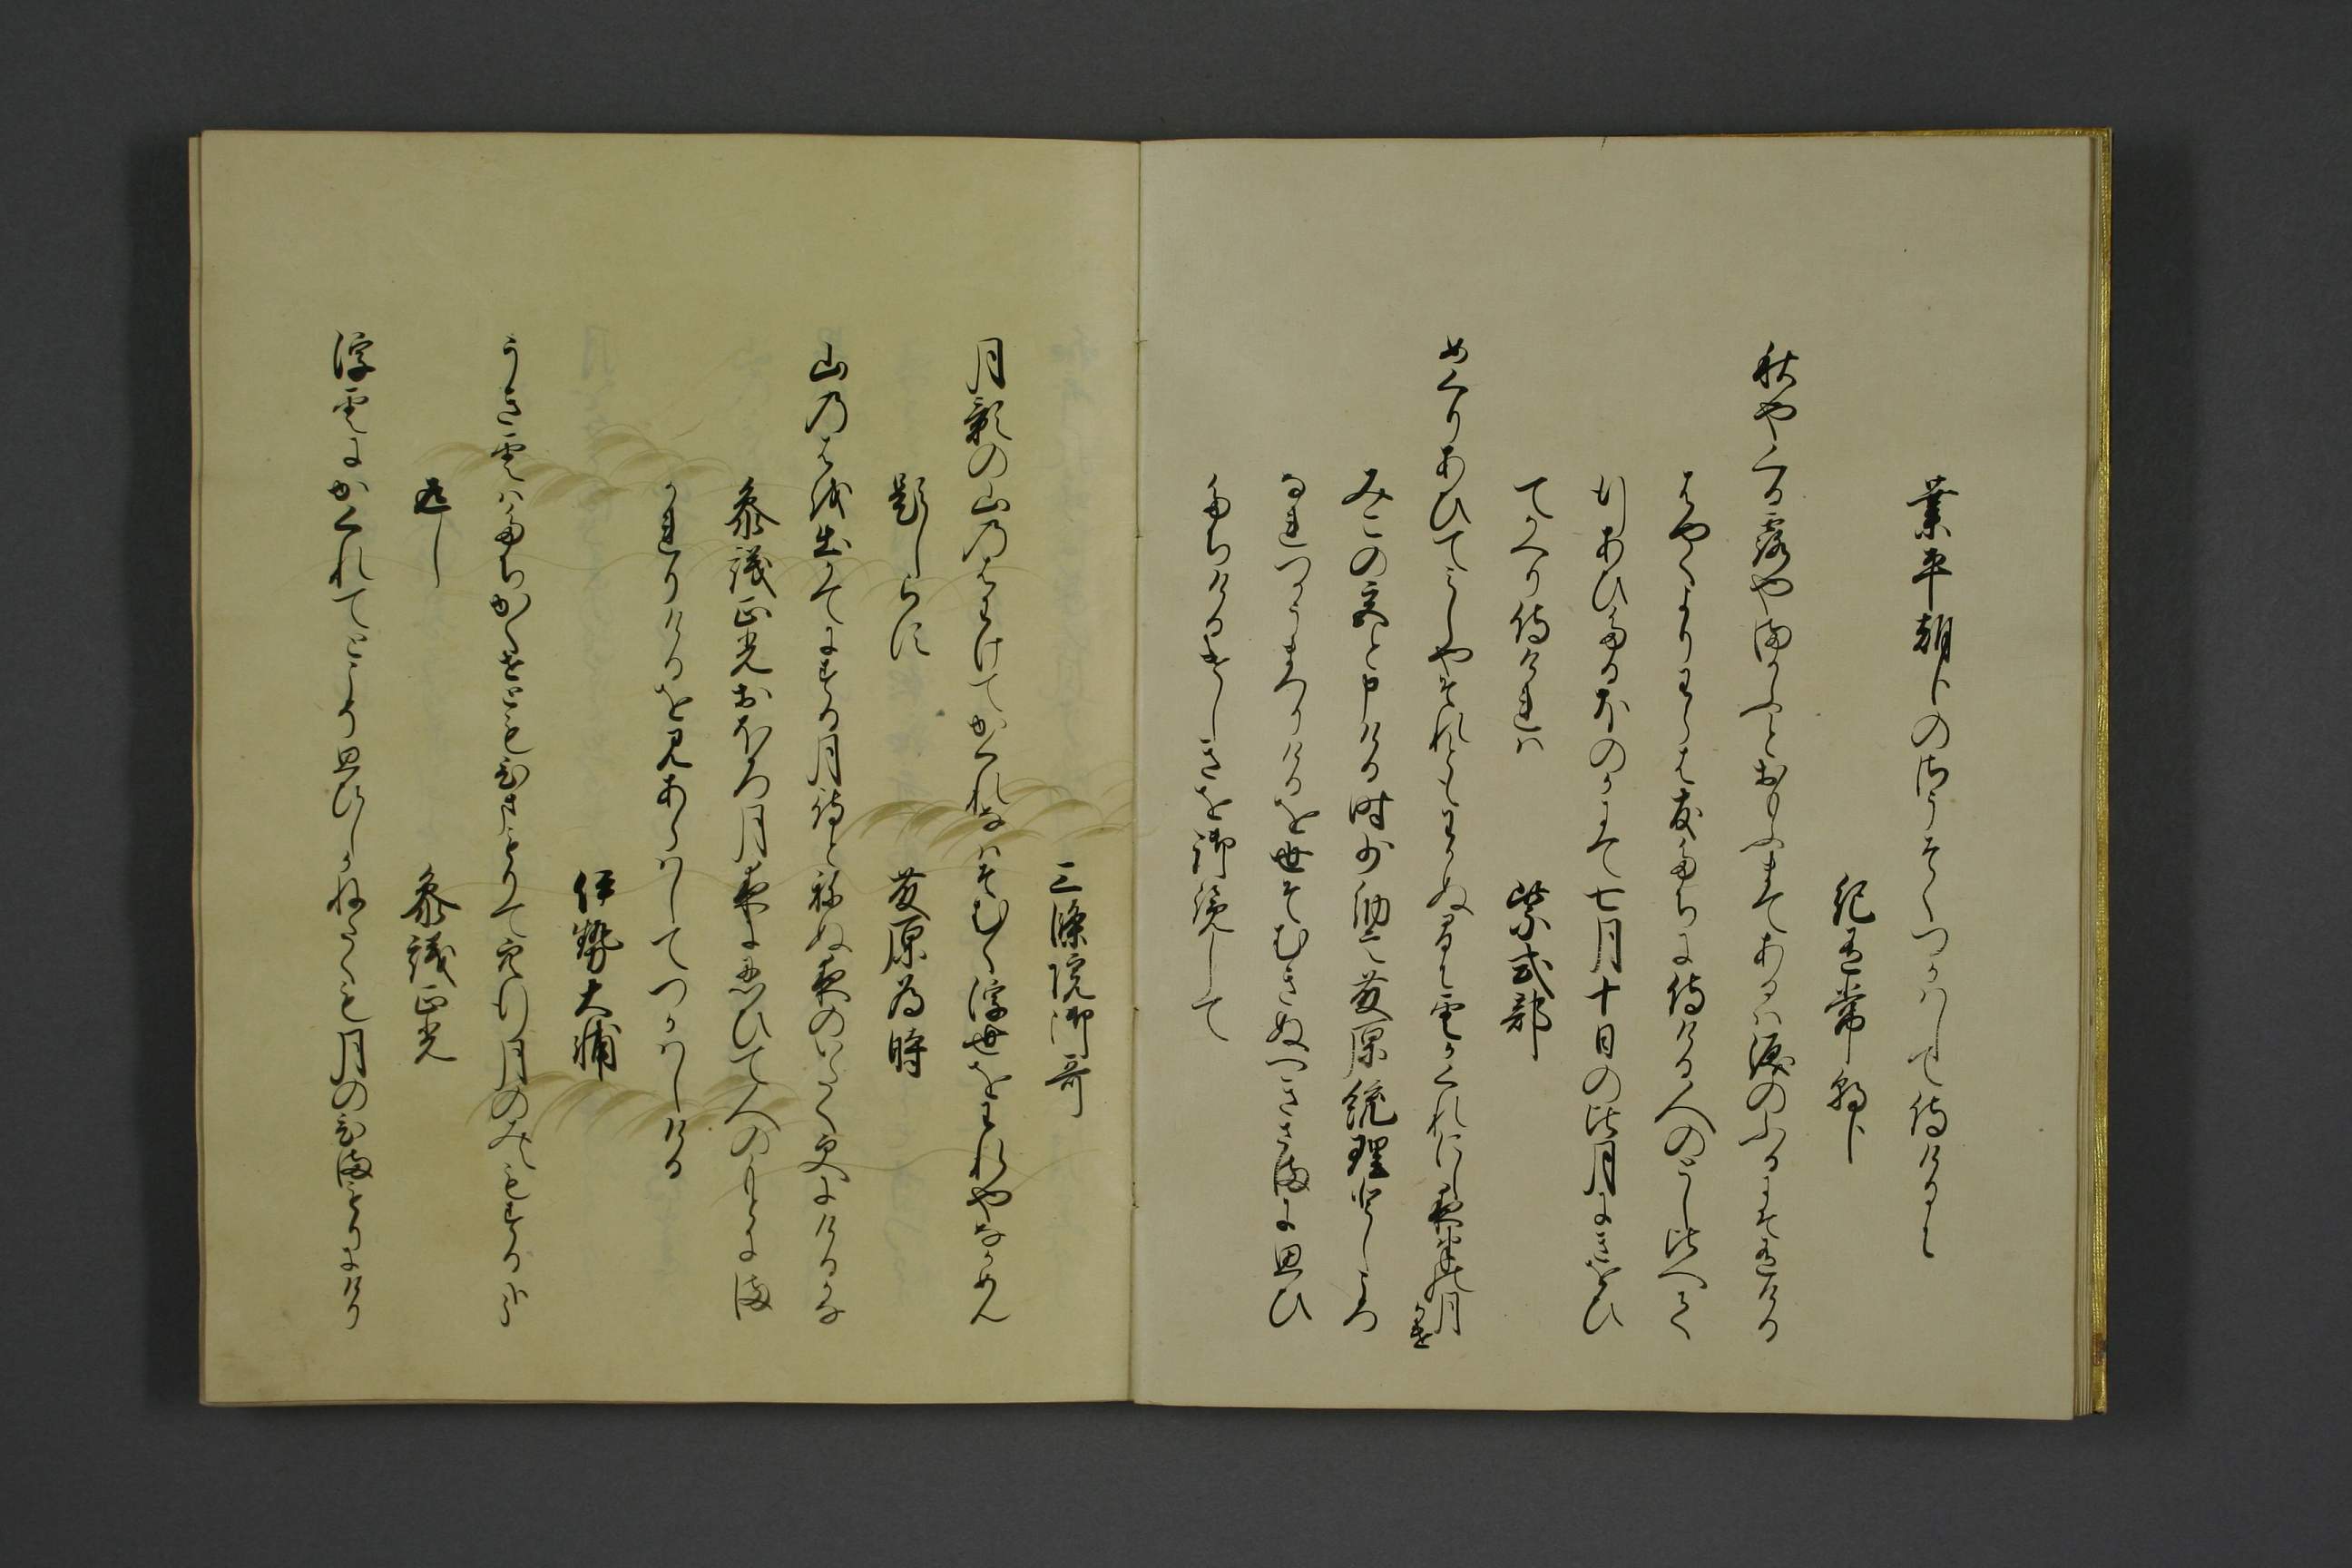 業平朝臣のさうそくつかはして侍けるに
紀有常朝臣
秋やくる露やまかふとおもふまてあるは涙のふるにそ有ける
はやくよりわらは友たちに侍ける人のとし比へて
行あひたるほのかにて七月十日の比月にきをひ
てかへり侍けれは
紫式部
めくりあひてみしやそれともわかぬまに雲かくれにし夜半の月かけ
みこの宮と申ける時少納言藤原統理としころ
なれつかうまつりけるを世そむきぬへきさまに思ひ
たちけるけしきを御覧して
三條院御哥
月影の山のはわけてかくれなはそむく浮世をわれやなかめん
題しらす
藤原為時
山のはを出かてにする月待とねぬ夜のいたく更にけるかな
参議正光おほろ月夜に忍ひて人のもとにま
かれりけるを見あらはしてつかはしける
伊勢大輔
うき雲はたちかくせともひまもりて空行月のみえもするかな
返し
参議正光
浮雲にかくれてとこそ思ひしかねたくも月のひまもりにけり